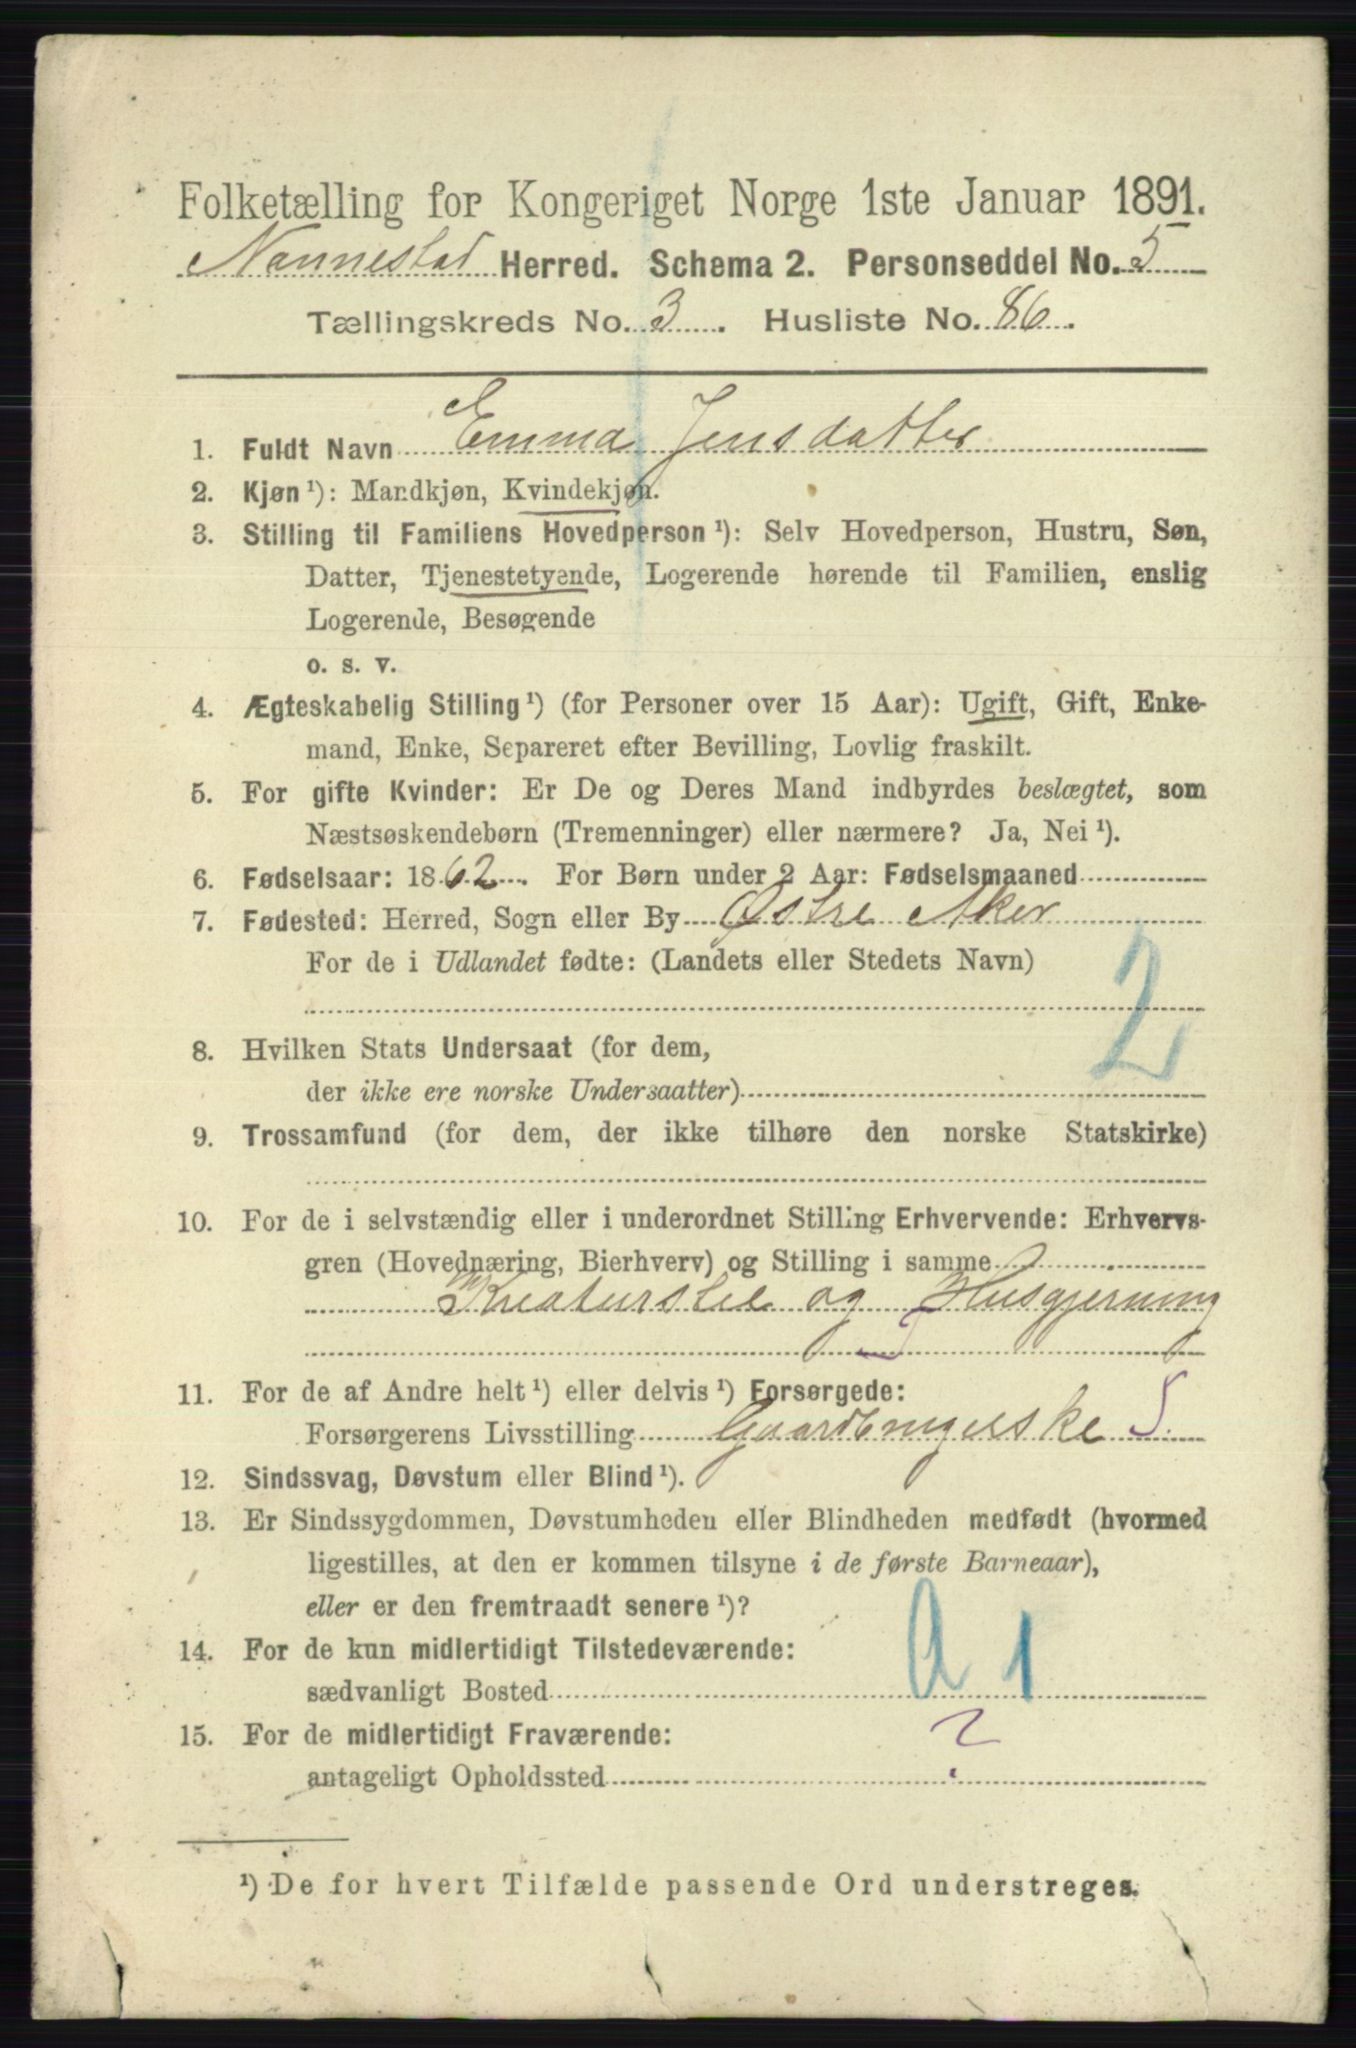 Folketælling for Kongeriget Norge 1ste Januar 1891.
Nannestad Herred. Schema 2. Personseddel No. 5
Tællingskreds No. 3. Husliste No. 86.
1. Fuldt Navn Emma Jensdatter
2. Kjøn ¹): Mandkjøn, Kvindekjøn.
3. Stilling til Familiens Hovedperson ¹): Selv Hovedperson, Hustru, Søn,
Datter, Tjenestetyende, Logerende hørende til Familien, enslig
Logerende, Besøgende
o. s. v.
4. Ægteskabelig Stilling ¹) (for Personer over 15 Aar): Ugift, Gift, Enke-
mand, Enke, Separeret efter Bevilling, Lovlig fraskilt.
5. For gifte Kvinder: Er De og Deres Mand indbyrdes beslægtet, som
Næstsøskendebørn (Tremenninger) eller nærmere? Ja, Nei ¹).
6. Fødselsaar: 1862. For Børn under 2 Aar: Fødselsmaaned
7. Fødested: Herred, Sogn eller By Østre Aker
For de i Udlandet fødte: (Landets eller Stedets Navn)
2
8. Hvilken Stats Undersaat (for dem,
der ikke ere norske Undersaatter)
9. Trossamfund (for dem, der ikke tilhøre den norske Statskirke)
10. For de i selvstændig eller i underordnet Stilling Erhvervende: Erhvervs-
gren (Hovednæring, Bierhverv) og Stilling i samme
Kreaturstel og Husgjerning
11. For de af Andre helt ¹) eller delvis ¹) Forsørgede:
Forsørgerens Livsstilling Gaardbrugerske S.
12. Sindssvag, Døvstum eller Blind ¹).
13. Er Sindssygdommen, Døvstumheden eller Blindheden medfødt (hvormed
ligestilles, at den er kommen tilsyne i de første Barneaar),
eller er den fremtraadt senere ¹)?
14. For de kun midlertidigt Tilstedeværende:
sædvanligt Bosted
a 1
15. For de midlertidigt Fraværende:
antageligt Opholdssted ?
¹) De for hvert Tilfælde passende Ord understreges.